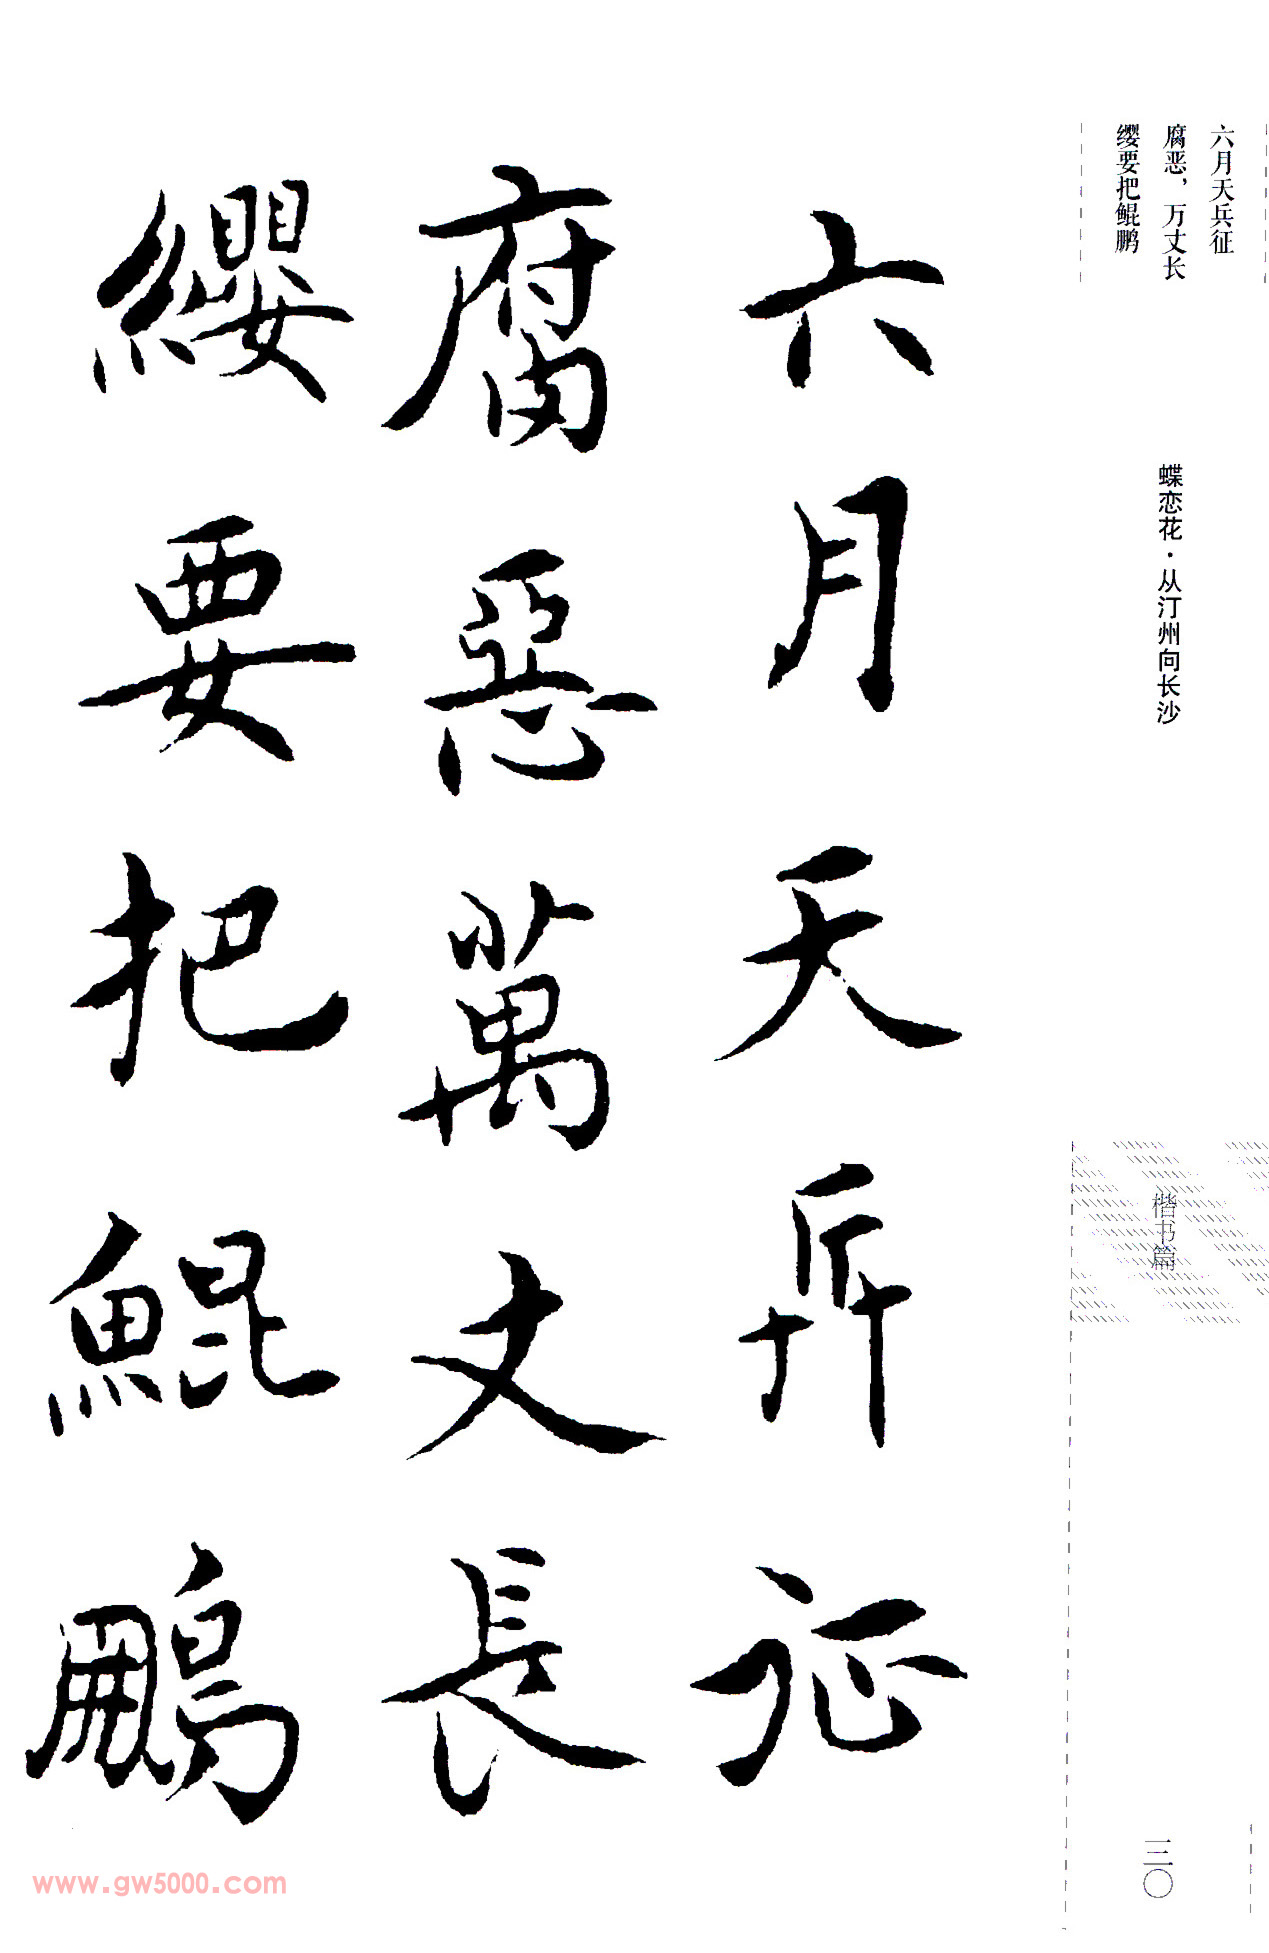 六月天兵征
腐恶，万丈长
缨要把鲲鹏
蝶恋花·从汀州向长沙
楷书篇
三〇
六月天兵征
腐惡萬丈長
纓要把鯤鵬
www.gw5000.com